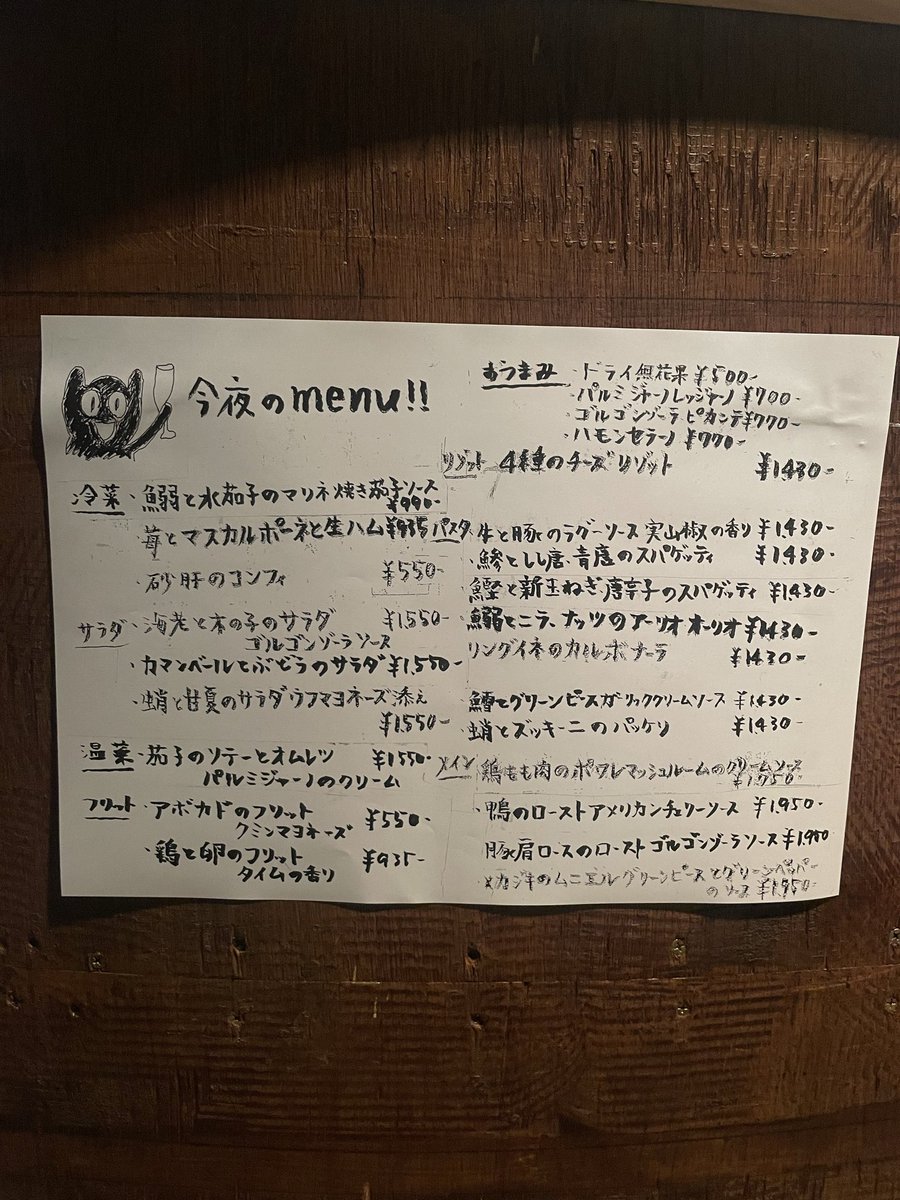 今夜のmenu!!
冷菜 ・鰯と水茄子のマリネ 焼き茄子ソース
¥990-
・苺とマスカルポーネと生ハム ¥935-
・砂肝のコンフィ ¥550-
サラダ ・海老と木の子のサラダ ¥1,550-
ゴルゴンゾーラソース
・カマンベールとぶどうのサラダ ¥1,550-
・蛸と甘夏のサラダ ウフマヨネーズ添え
¥1,550-
温菜 ・茄子のソテーとオムレツ ¥1550-
パルミジャーノのクリーム
フリット ・アボカドのフリット ¥550-
クミンマヨネーズ
・鶏と卵のフリット ¥935-
タイムの香り
おつまみ ・ドライ無花果 ¥500-
・パルミジャーノレッジャーノ ¥700-
・ゴルゴンゾーラ ピカンテ ¥770-
・ハモンセラーノ ¥770-
リゾット 4種のチーズリゾット ¥1430-
パスタ ・牛と豚のラグーソース 実山椒の香り ¥1,430-
・鯵としし唐、青唐のスパゲッティ ¥1,430-
・鰹と新玉ねぎ、唐辛子のスパゲッティ ¥1430-
・鰯とニラ、ナッツのアーリオオーリオ ¥1430-
リングイネのカルボナーラ ¥1430-
・鱈とグリーンピース ガーリッククリームソース ¥1430-
・蛸とズッキーニのパッケリ ¥1430-
メイン ・鶏もも肉のポワレ マッシュルームのクリームソース
¥1,950-
・鴨のロースト アメリカンチェリーソース ¥1,950-
豚肩ロースのロースト ゴルゴンゾーラソース ¥1,950
・メカジキのムニエル グリーンピースとグリーンペッパー
のソース ¥1,950-